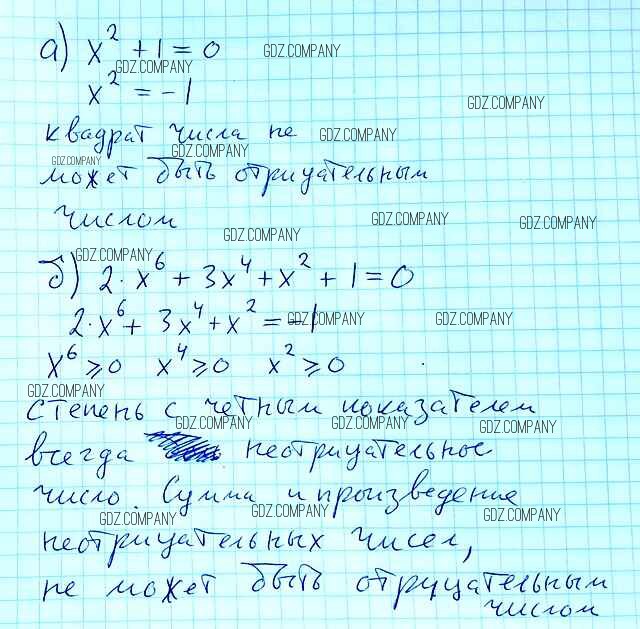 а) x² + 1 = 0 GDZ.COMPANY
GDZ.COMPANY
x² = -1
GDZ.COMPANY
квадрат числа не GDZ.COMPANY
GDZ.COMPANY GDZ.COMPANY
может быть отрицательным
числом GDZ.COMPANY GDZ.COMPANY
GDZ.COMPANY
GDZ.COMPANY
б) 2·x⁶ + 3x⁴ + x² + 1 = 0
2·x⁶ + 3x⁴ + x² = -1 GDZ.COMPANY GDZ.COMPANY
x⁶ ⩾ 0 x⁴ ⩾ 0 x² ⩾ 0
GDZ.COMPANY
степень с четным показателем
GDZ.COMPANY GDZ.COMPANY GDZ.COMPANY
всегда неотрицательное
число. Сумма и произведение
GDZ.COMPANY GDZ.COMPANY GDZ.COMPANY
неотрицательных чисел,
не может быть отрицательным
числом